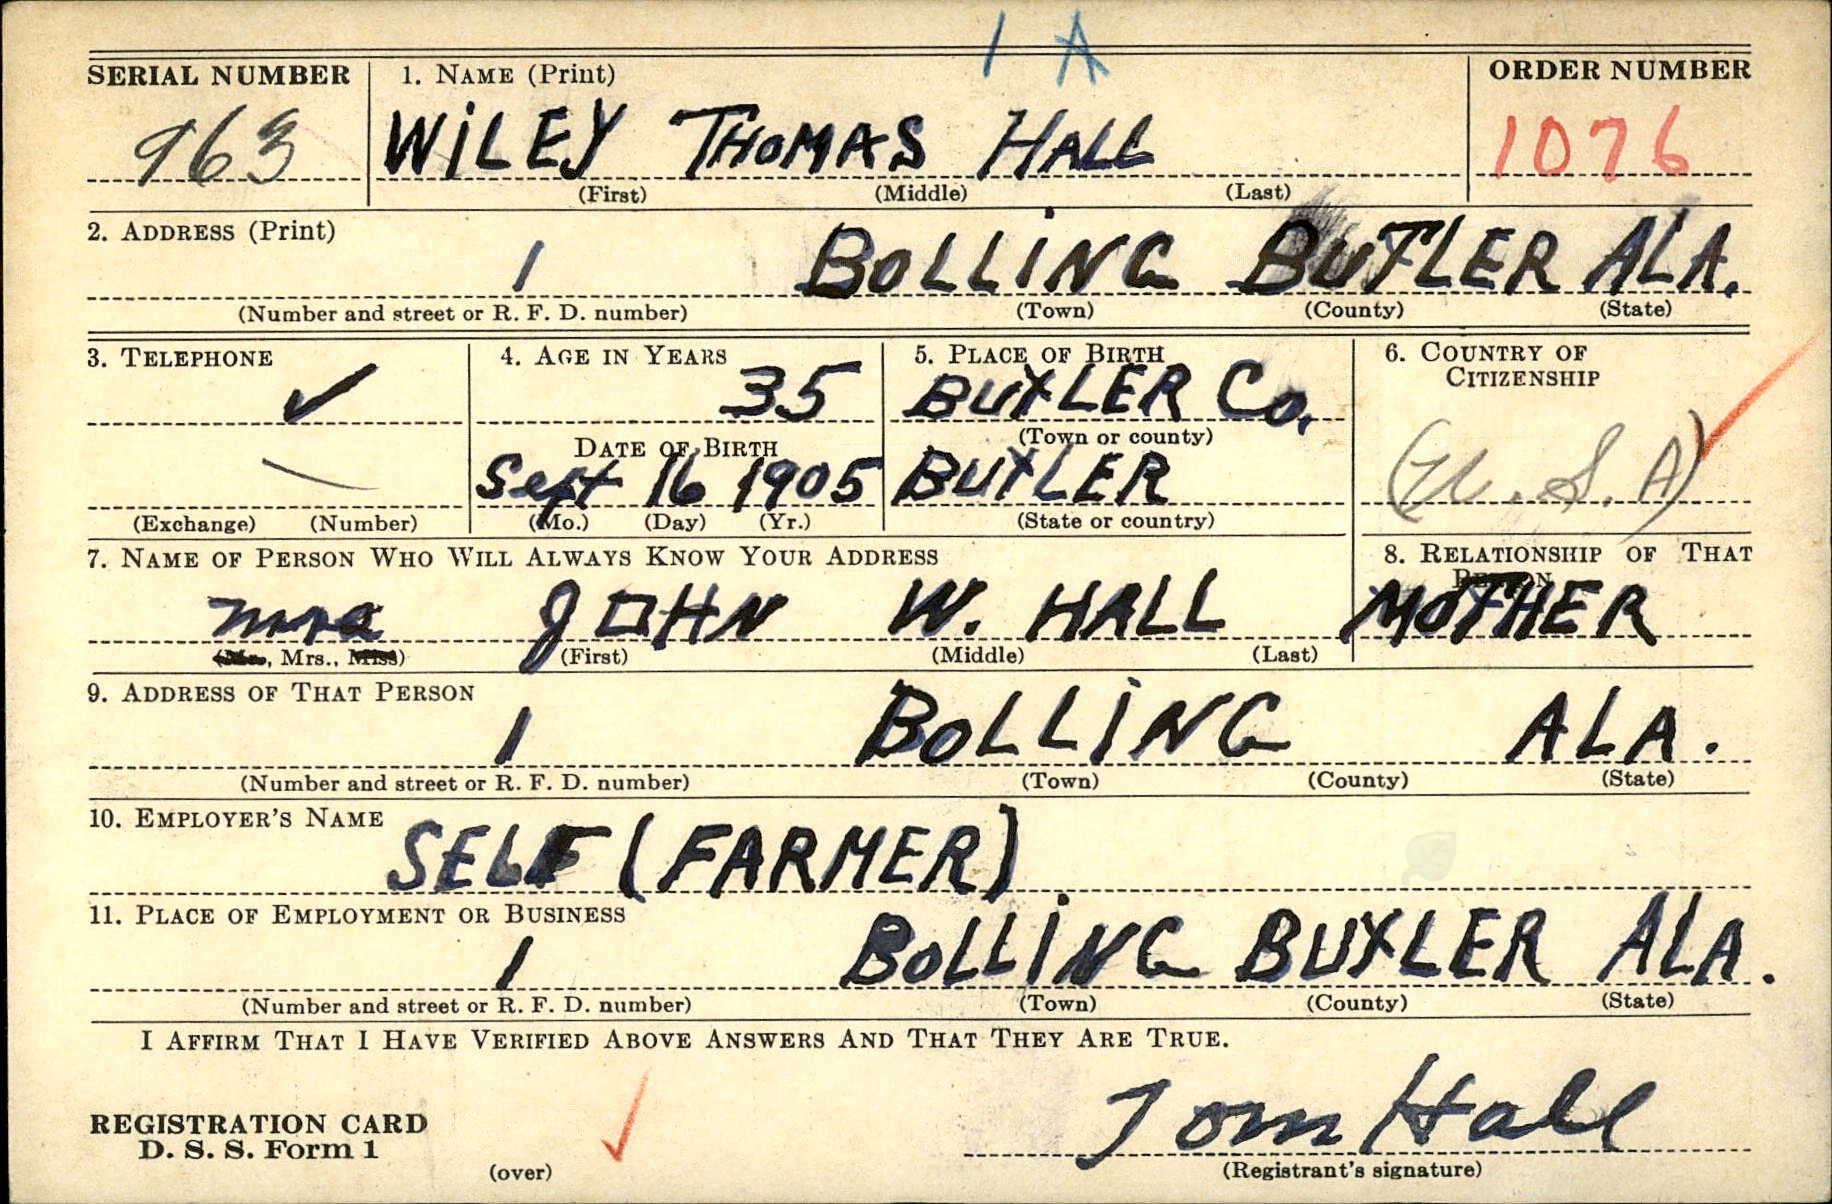 1 A
SERIAL NUMBER 1. NAME (Print) ORDER NUMBER
963 WiLEY THOMAS HALL 1076
(First) (Middle) (Last)
2. ADDRESS (Print)
1 BOLLiNG BUTLER ALA.
(Number and street or R. F. D. number) (Town) (County) (State)
3. TELEPHONE 4. AGE IN YEARS 5. PLACE OF BIRTH 6. COUNTRY OF
CITIZENSHIP
✓ 35 BUTLER Co.
DATE OF BIRTH (Town or county)
Sept 16 1905 BUTLER (U.S.A)
(Exchange) (Number) (Mo.) (Day) (Yr.) (State or country)
7. NAME OF PERSON WHO WILL ALWAYS KNOW YOUR ADDRESS 8. RELATIONSHIP OF THAT
PERSON
Mrs JOHN W. HALL MOTHER
(Mr., Mrs., Miss) (First) (Middle) (Last)
9. ADDRESS OF THAT PERSON
1 BOLLiNG ALA.
(Number and street or R. F. D. number) (Town) (County) (State)
10. EMPLOYER'S NAME
SELF (FARMER)
11. PLACE OF EMPLOYMENT OR BUSINESS
1 BOLLiNG BUTLER ALA.
(Number and street or R. F. D. number) (Town) (County) (State)
I AFFIRM THAT I HAVE VERIFIED ABOVE ANSWERS AND THAT THEY ARE TRUE.
Tom Hall
REGISTRATION CARD
D. S. S. Form 1
(over) (Registrant's signature)